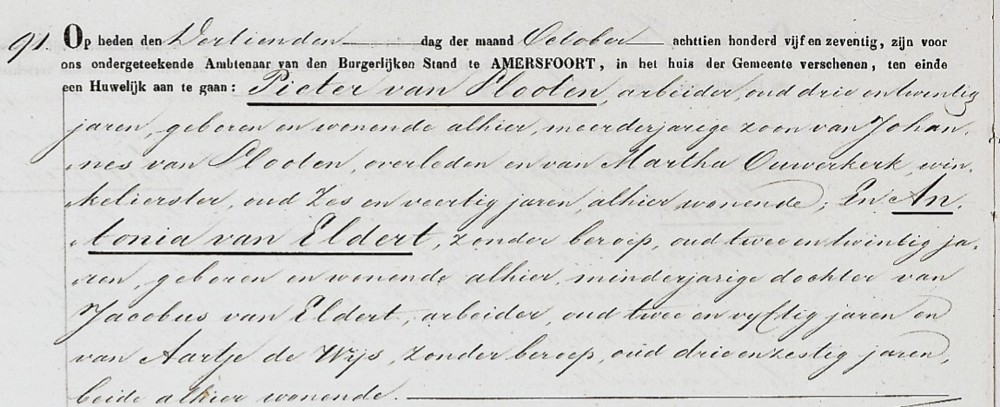 91. Op heden den Dertienden dag der maand October achttien honderd vijf en zeventig, zijn voor
ons ondergeteekende Ambtenaar van den Burgerlijken Stand te AMERSFOORT, in het huis der Gemeente verschenen, ten einde
een Huwelijk aan te gaan: Pieter van Slooten, arbeider, oud drie en twintig
jaren, geboren en wonende alhier, meerderjarige zoon van Johan,
,nes van Slooten, overleden en van Martha Ouwerkerk, win,
,kelierster, oud Zes en veertig jaren, alhier wonende; En An,
,tonia van Eldert, zonder beroep, oud twee en twintig ja,
,ren, geboren en wonende alhier, minderjarige dochter van
Jacobus van Eldert, arbeider, oud twee en vyftig jaren en
van Aartje de Wijs, zonder beroep, oud drie en zestig jaren,
beide alhier wonende.